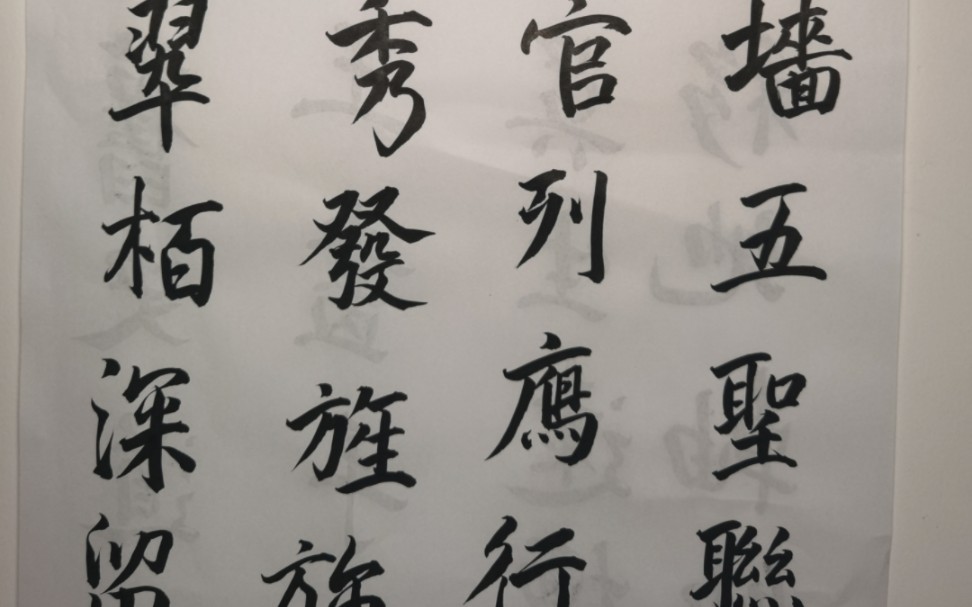 墻五聖聯
官列鴈行
秀發旌旆
翠栢深留